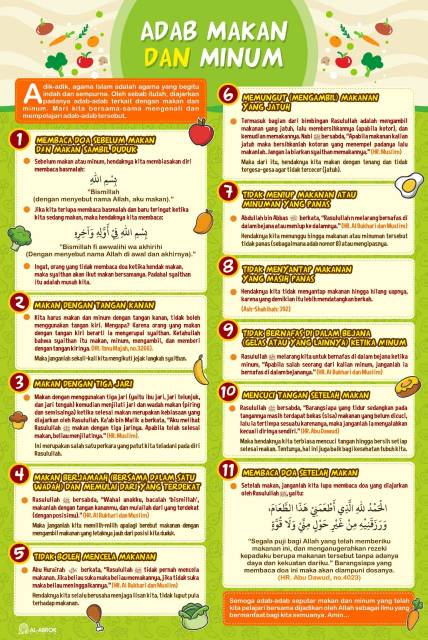 ADAB MAKAN
DAN MINUM
Adik-adik, agama Islam adalah agama yang begitu
indah dan sempurna. Oleh sebab itulah, diajarkan
padanya adab-adab terkait dengan makan dan
minum. Mari kita bersama-sama mengenali dan
mempelajari adab-adab tersebut.
1 MEMBACA DOA SEBELUM MAKAN
DAN MAKAN SAMBIL DUDUK
Sebelum makan atau minum, hendaknya kita membiasakan diri
membaca basmalah:
بِسْمِ اللهِ
"Bismillah
(dengan menyebut nama Allah, aku makan)."
Jika kita terlupa membaca basmalah dan baru teringat ketika
kita sedang makan, maka hendaknya kita membaca:
بِسْمِ اللهِ فِيْ أَوَّلِهِ وَآخِرِهِ
"Bismillah fi awwalihi wa akhirihi
(Dengan menyebut nama Allah di awal dan akhirnya)."
Ingat, orang yang tidak membaca doa ketika hendak makan,
maka syaithan akan ikut makan bersamanya. Padahal syaithan
itu adalah musuh kita.
2 MAKAN DENGAN TANGAN KANAN
Kita harus makan dan minum dengan tangan kanan, tidak boleh
menggunakan tangan kiri. Mengapa? Karena orang yang makan
dengan tangan kiri berarti ia menyerupai syaithan. Ketahuilah
bahwa syaithan itu makan, minum, mengambil, dan memberi
dengan tangan kirinya. (HR. Ibnu Majah, no.3266).
Maka janganlah sekali-kali kita mengikuti jejak langkah syaithan.
3 MAKAN DENGAN TIGA JARI
Makan dengan menggunakan tiga jari (yaitu ibu jari, jari telunjuk,
dan jari tengah) kemudian menjilati jari dan wadah makan (piring
dan semisalnya) ketika selesai makan merupakan kebiasaan yang
diajarkan oleh Rasulullah. Ka'ab bin Malik berkata, "Aku melihat
Rasulullah ﷺ makan dengan tiga jarinya. Apabila telah selesai
makan, beliau menjilatinya." (HR. Muslim).
Ini merupakan salah satu perkara yang patut kita teladani pada diri
Rasulullah.
4 MAKAN BERJAMAAH (BERSAMA DALAM SATU
WADAH) DAN MEMULAI DARI YANG TERDEKAT
Rasulullah ﷺ bersabda, "Wahai anakku, bacalah 'bismillah',
makanlah dengan tangan kananmu, dan mulailah dari yang terdekat
(dengan posisimu)." (HR. Al Bukhari dan Muslim)
Maka janganlah kita memilih-milih apalagi berebut makanan dengan
mengambil makanan yang letaknya jauh dari posisi kita duduk.
5 TIDAK BOLEH MENCELA MAKANAN
Abu Hurairah berkata, "Rasulullah ﷺ tidak pernah mencela
makanan. Jika beliau suka maka beliau memakannya, jika tidak suka
maka beliau meninggalkannya." (HR. Al Bukhari dan Muslim)
Hendaknya kita selalu berusaha menjaga lisan kita, tidak luput pula
terhadap makanan.
AL-ABROR
6 MEMUNGUT (MENGAMBIL) MAKANAN
YANG JATUH
Termasuk bagian dari bimbingan Rasulullah adalah mengambil
makanan yang jatuh, lalu membersihkannya (apabila kotor), dan
kemudian memakannya. Nabi ﷺ bersabda, "Apabila makanan kalian
jatuh maka bersihkanlah kotoran yang menempel padanya lalu
makanlah. Jangan ia biarkan syaithan memakannya." (HR. Muslim)
Maka dari itu, hendaknya kita makan dengan tenang dan tidak
tergesa-gesa agar tidak tercecer (jatuh).
7 TIDAK MENIUP MAKANAN ATAU
MINUMAN YANG PANAS
Abdullah bin Abbas berkata, "Rasulullah ﷺ melarang bernafas di
dalam bejana atau meniup ke dalamnya." (HR. Al Bukhari dan Muslim)
Hendaknya kita menunggu hingga makanan atau minuman tersebut
tidak panas (sebagaimana adab nomor 8) atau mengipasnya.
8 TIDAK MENYANTAP MAKANAN
YANG MASIH PANAS
Hendaknya kita tidak menyantap makanan hingga hilang uapnya,
karena yang demikian itu lebih mendatangkan berkah.
(Ash-Shahihah: 392)
9 TIDAK BERNAFAS DI DALAM BEJANA
(GELAS ATAU YANG LAINNYA) KETIKA MINUM
Rasulullah ﷺ melarang kita untuk bernafas di dalam bejana ketika
minum, "Apabila salah seorang dari kalian minum, janganlah ia
bernafas di dalam bejananya." (HR. Al Bukhari dan Muslim)
10 MENCUCI TANGAN SETELAH MAKAN
Rasulullah ﷺ bersabda, "Barangsiapa yang tidur sedangkan pada
tangannya masih terdapat bekas (sisa) makanan yang belum dicuci,
lalu ia tertimpa sesuatu karenanya, maka janganlah ia menyalahkan
kecuali dirinya sendiri." (HR. Abu Dawud)
Maka hendaknya kita terbiasa mencuci tangan hingga bersih setiap
selesai makan. Tentunya, hal ini juga baik bagi kesehatan tubuh kita.
11 MEMBACA DOA SETELAH MAKAN
Setelah makan, janganlah kita lupa membaca doa yang diajarkan
oleh Rasulullah ﷺ, yaitu:
الْحَمْدُ لِلَّهِ الَّذِي أَطْعَمَنِي هَذَا الطَّعَامَ،
وَرَزَقَنِيْهِ مِنْ غَيْرِ حَوْلٍ مِنِّيْ وَلَا قُوَّةٍ
"Segala puji bagi Allah yang telah memberiku
makanan ini, dan menganugerahkan rezeki
kepadaku berupa makanan tersebut tanpa adanya
daya dan kekuatan dariku." Barangsiapa yang
membaca doa ini maka akan diampuni dosanya.
(HR. Abu Dawud, no.4023)
Semoga adab-adab seputar makan dan minum yang telah
kita pelajari bersama dijadikan oleh Allah sebagai ilmu yang
bermanfaat bagi kita semuanya. Amin...